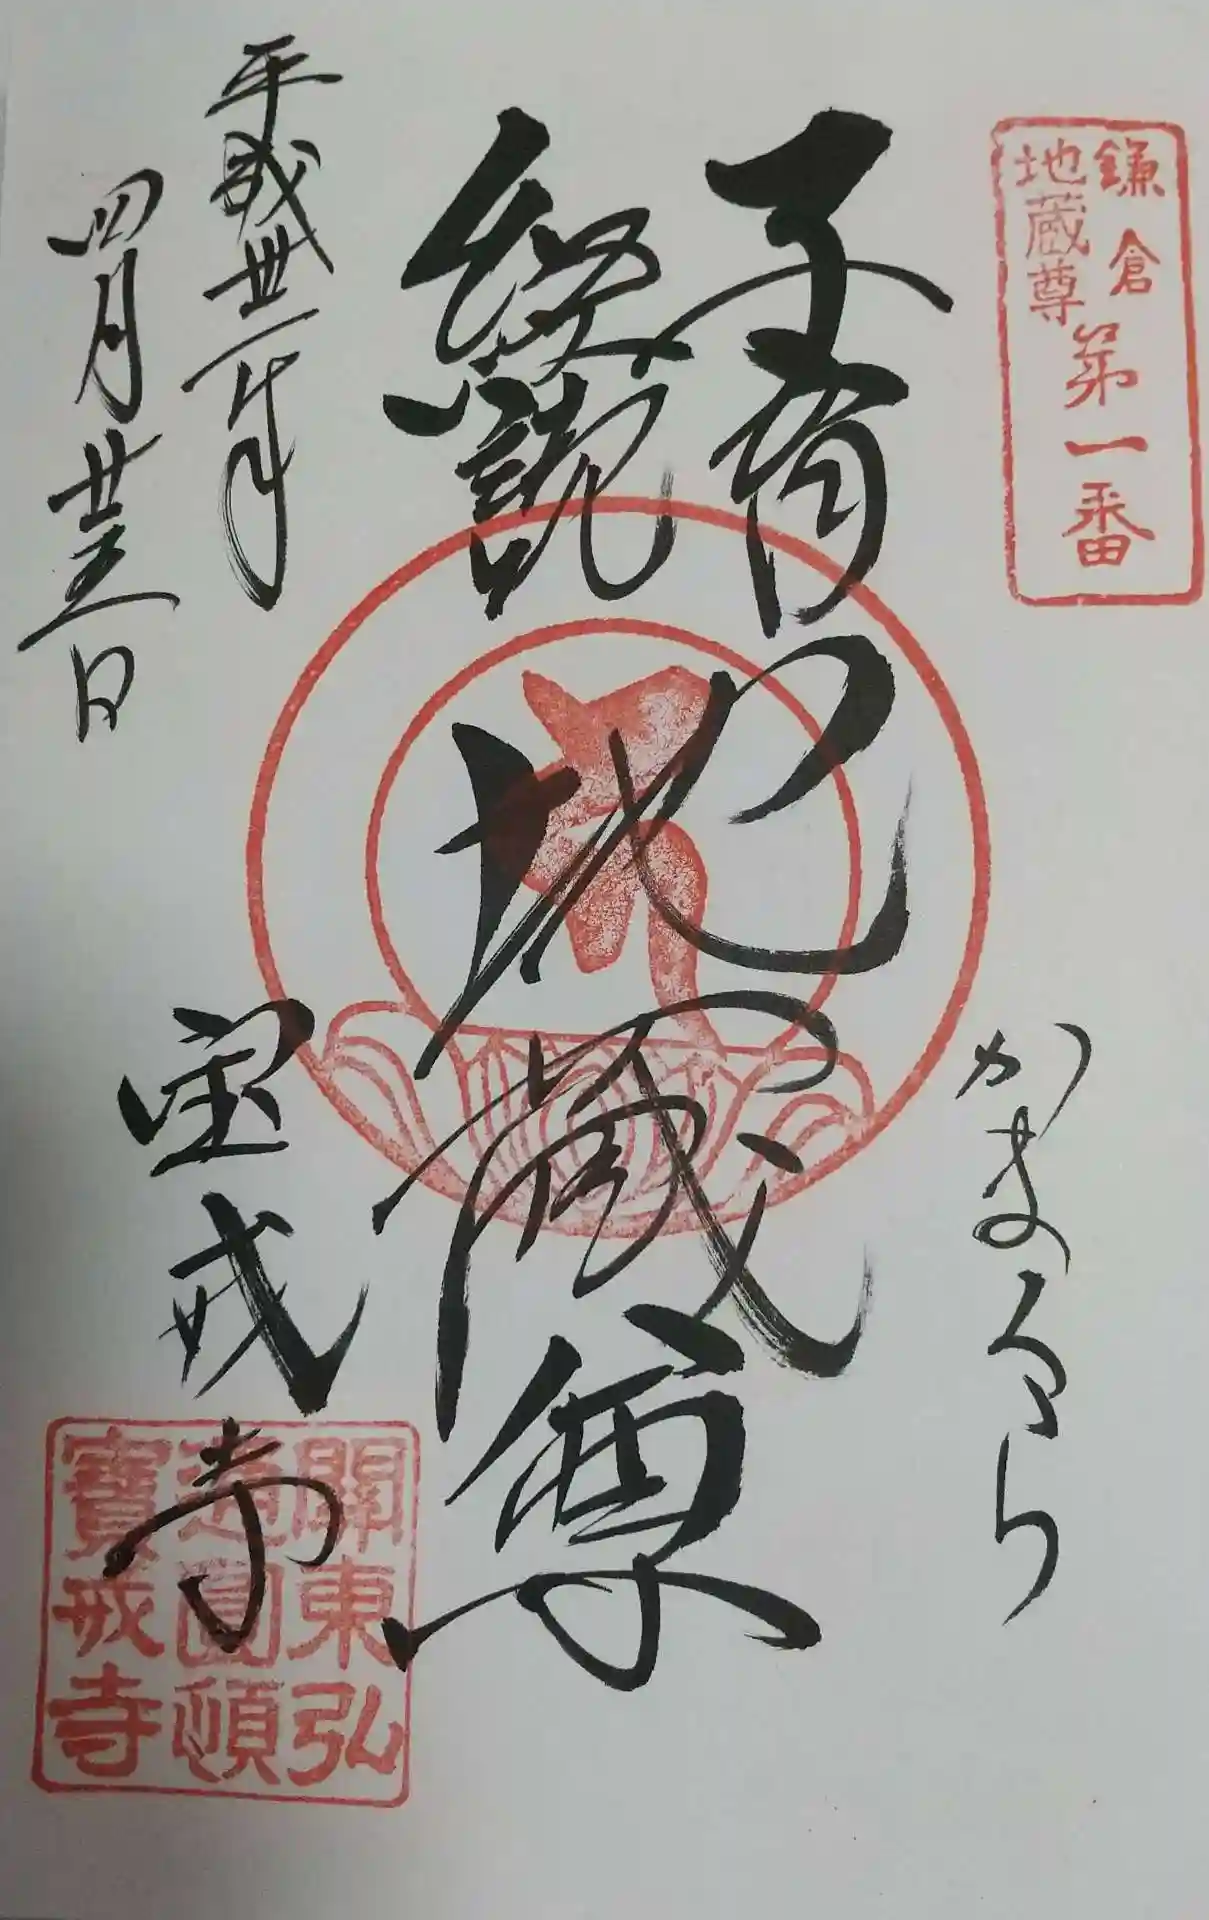 鎌倉
地蔵尊
第一番
かまくら
子育
経読
地蔵尊
平成卅一年
四月廿三日
宝戒寺
關東弘
通圓頓
寶戒寺